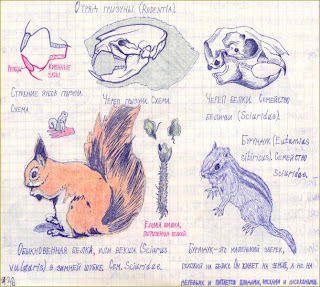 Отряд грызуны (Rodentia).
Резцы
Коренные зубы
Строение зубов грызуна.
Схема
Череп грызуна. Схема.
Череп белки. Семейство
беличьи (Sciuridae).
Бурундук (Eutamias
sibiricus). Семейство
Sciuridae.
Еловая шишка,
погрызенная белкой.
Обыкновенная белка, или векша (Sciurus
vulgaris) в зимней шубке. Сем. Sciuridae.
Бурундук-это маленький зверек,
похожий на белку. Он живет на земле, а не на
деревьях и питается